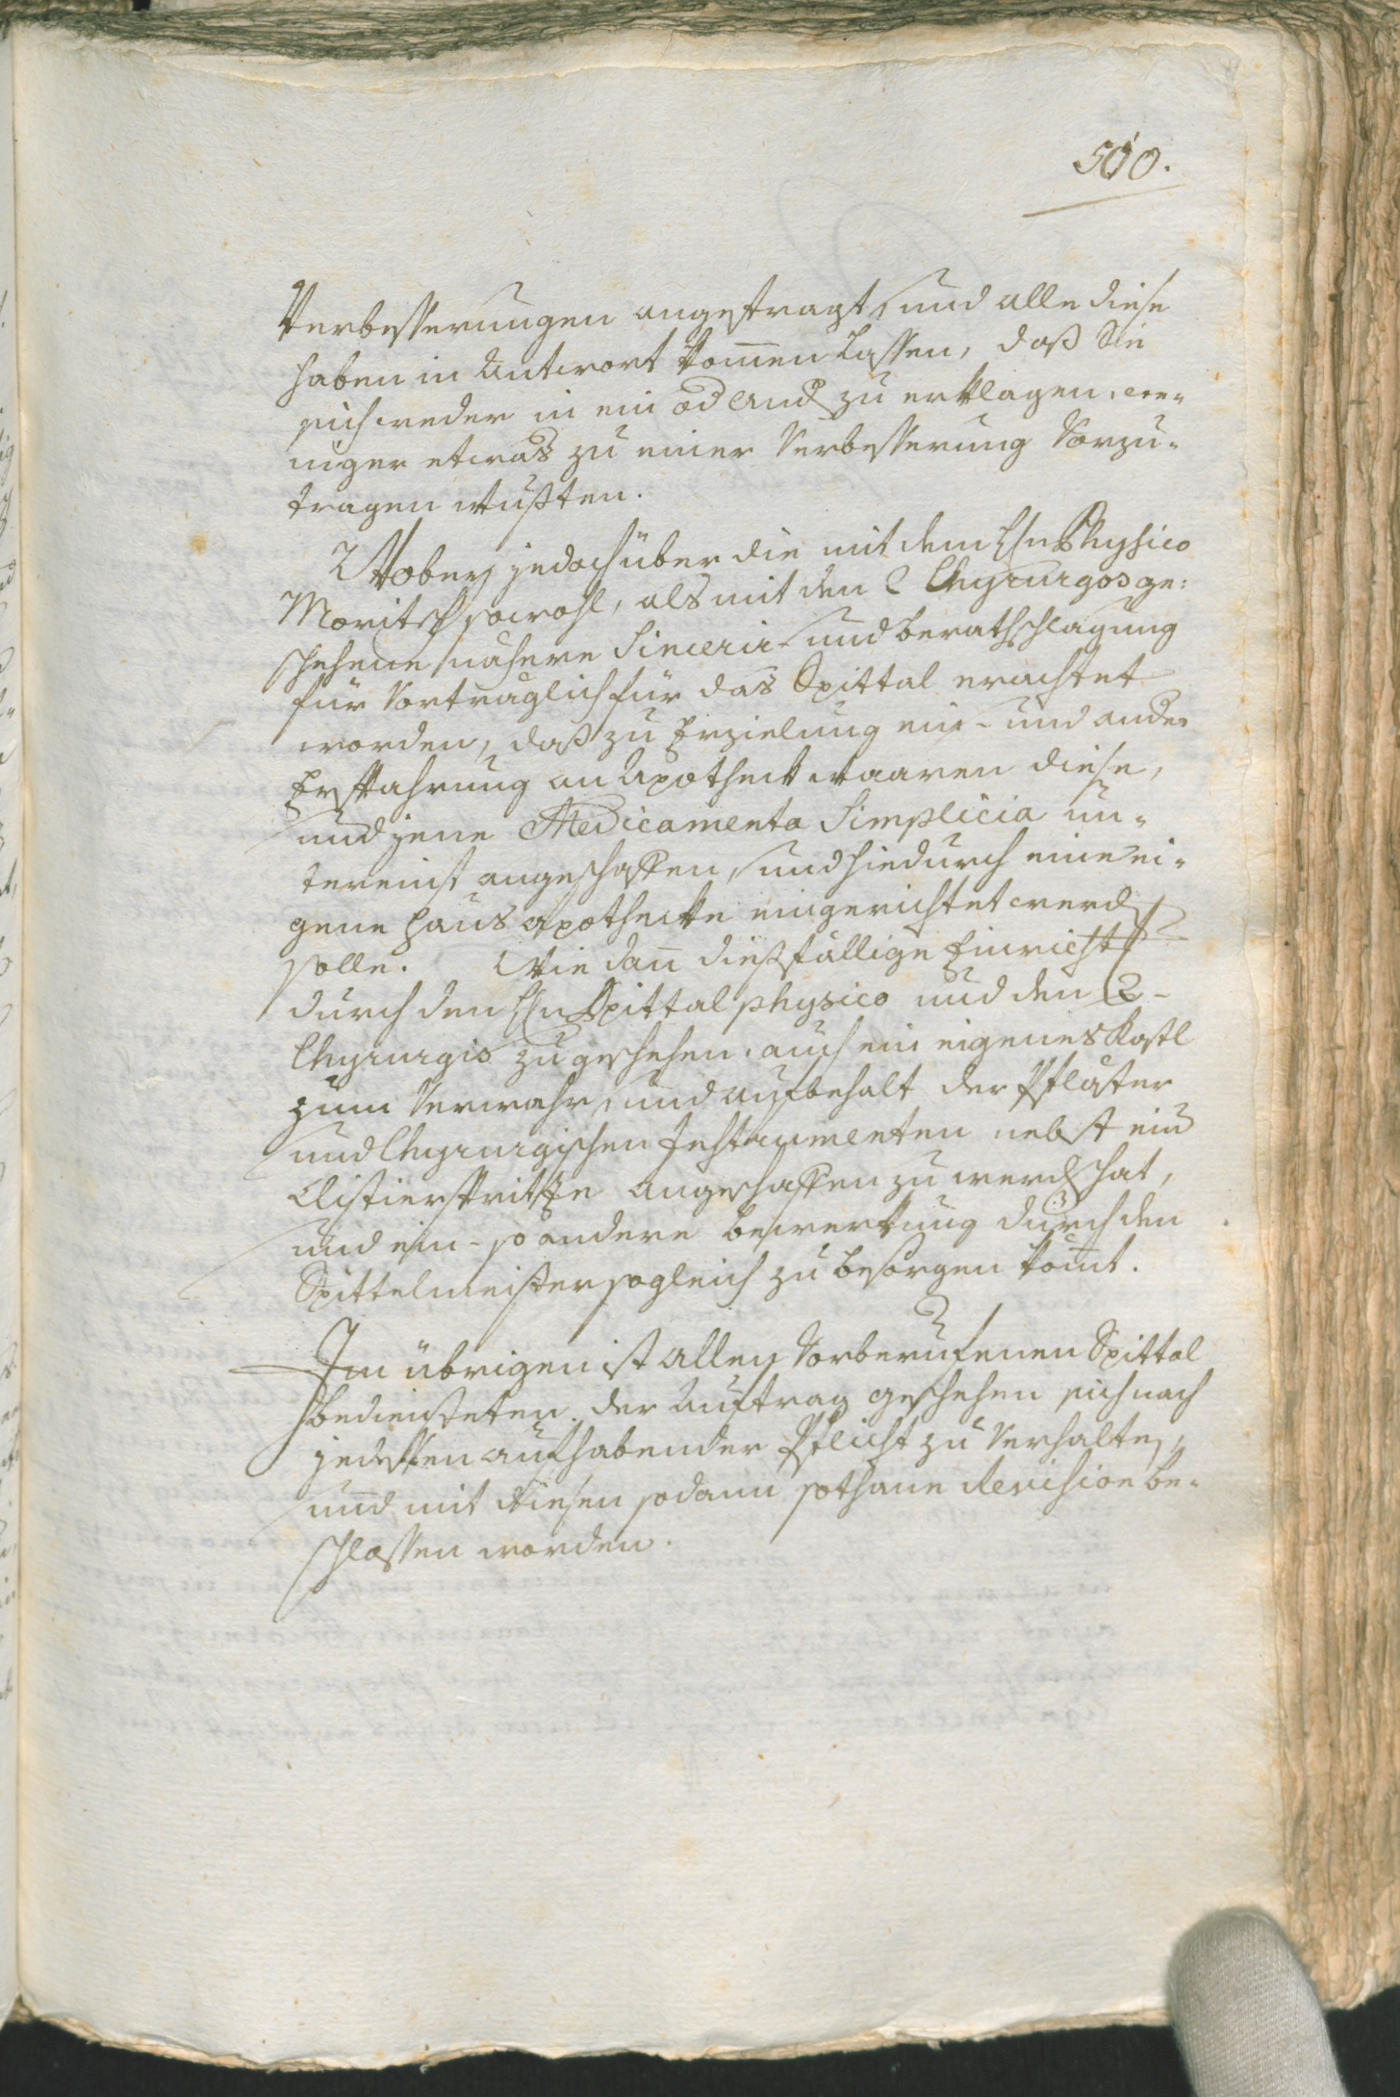 500.
Verbesserungen angefragt, und alle diese
haben in Antwort kom̅en lassen, daß Sie
sich weder in ein od and zu erklagen, we-
niger etwas zu einer Verbesserung Vorzu-
tragen wußten.
Wobey jedoch über die mit dem H̅n Physico
Moritsch sowohl, als mit den 2 Chyrurgos ge:
schehene nähere Sincerir- und Berathschlagung
für Vorträglich für das Spittal erachtet
worden, daß zu Erzielung ein- und ander
Erspahrung an Apothek waaren diese,
und jene Medicamenta Simplicia un-
tereinst angeschaffen, und hiedurch eine ei-
gene Haus Apothecke eingerichtet werd
solle. Wie dan̅ dießfällige Einricht
durch den H̅n Spittal physico und den 2-
Chyrurgis zu geschehen, auch ein eigenes Kastl
zum Verwahr, und Aufbehalt der Pflaster
und Chyrurgischen Instrumenten nebst ein
Clistierspritze angeschaffen zu werd hat,
und ein- so andere bewerkung durch den
Spittelmeister sogleich zu besorgen kom̅t.
Im übrigen ist allen Vorberufenen Spittal
bediensteten der Auftrag geschehen sich nach
jedessen aufhabender Pflicht zu Verhalten,
und mit diesen sodann sothane Revision be-
schlossen worden.